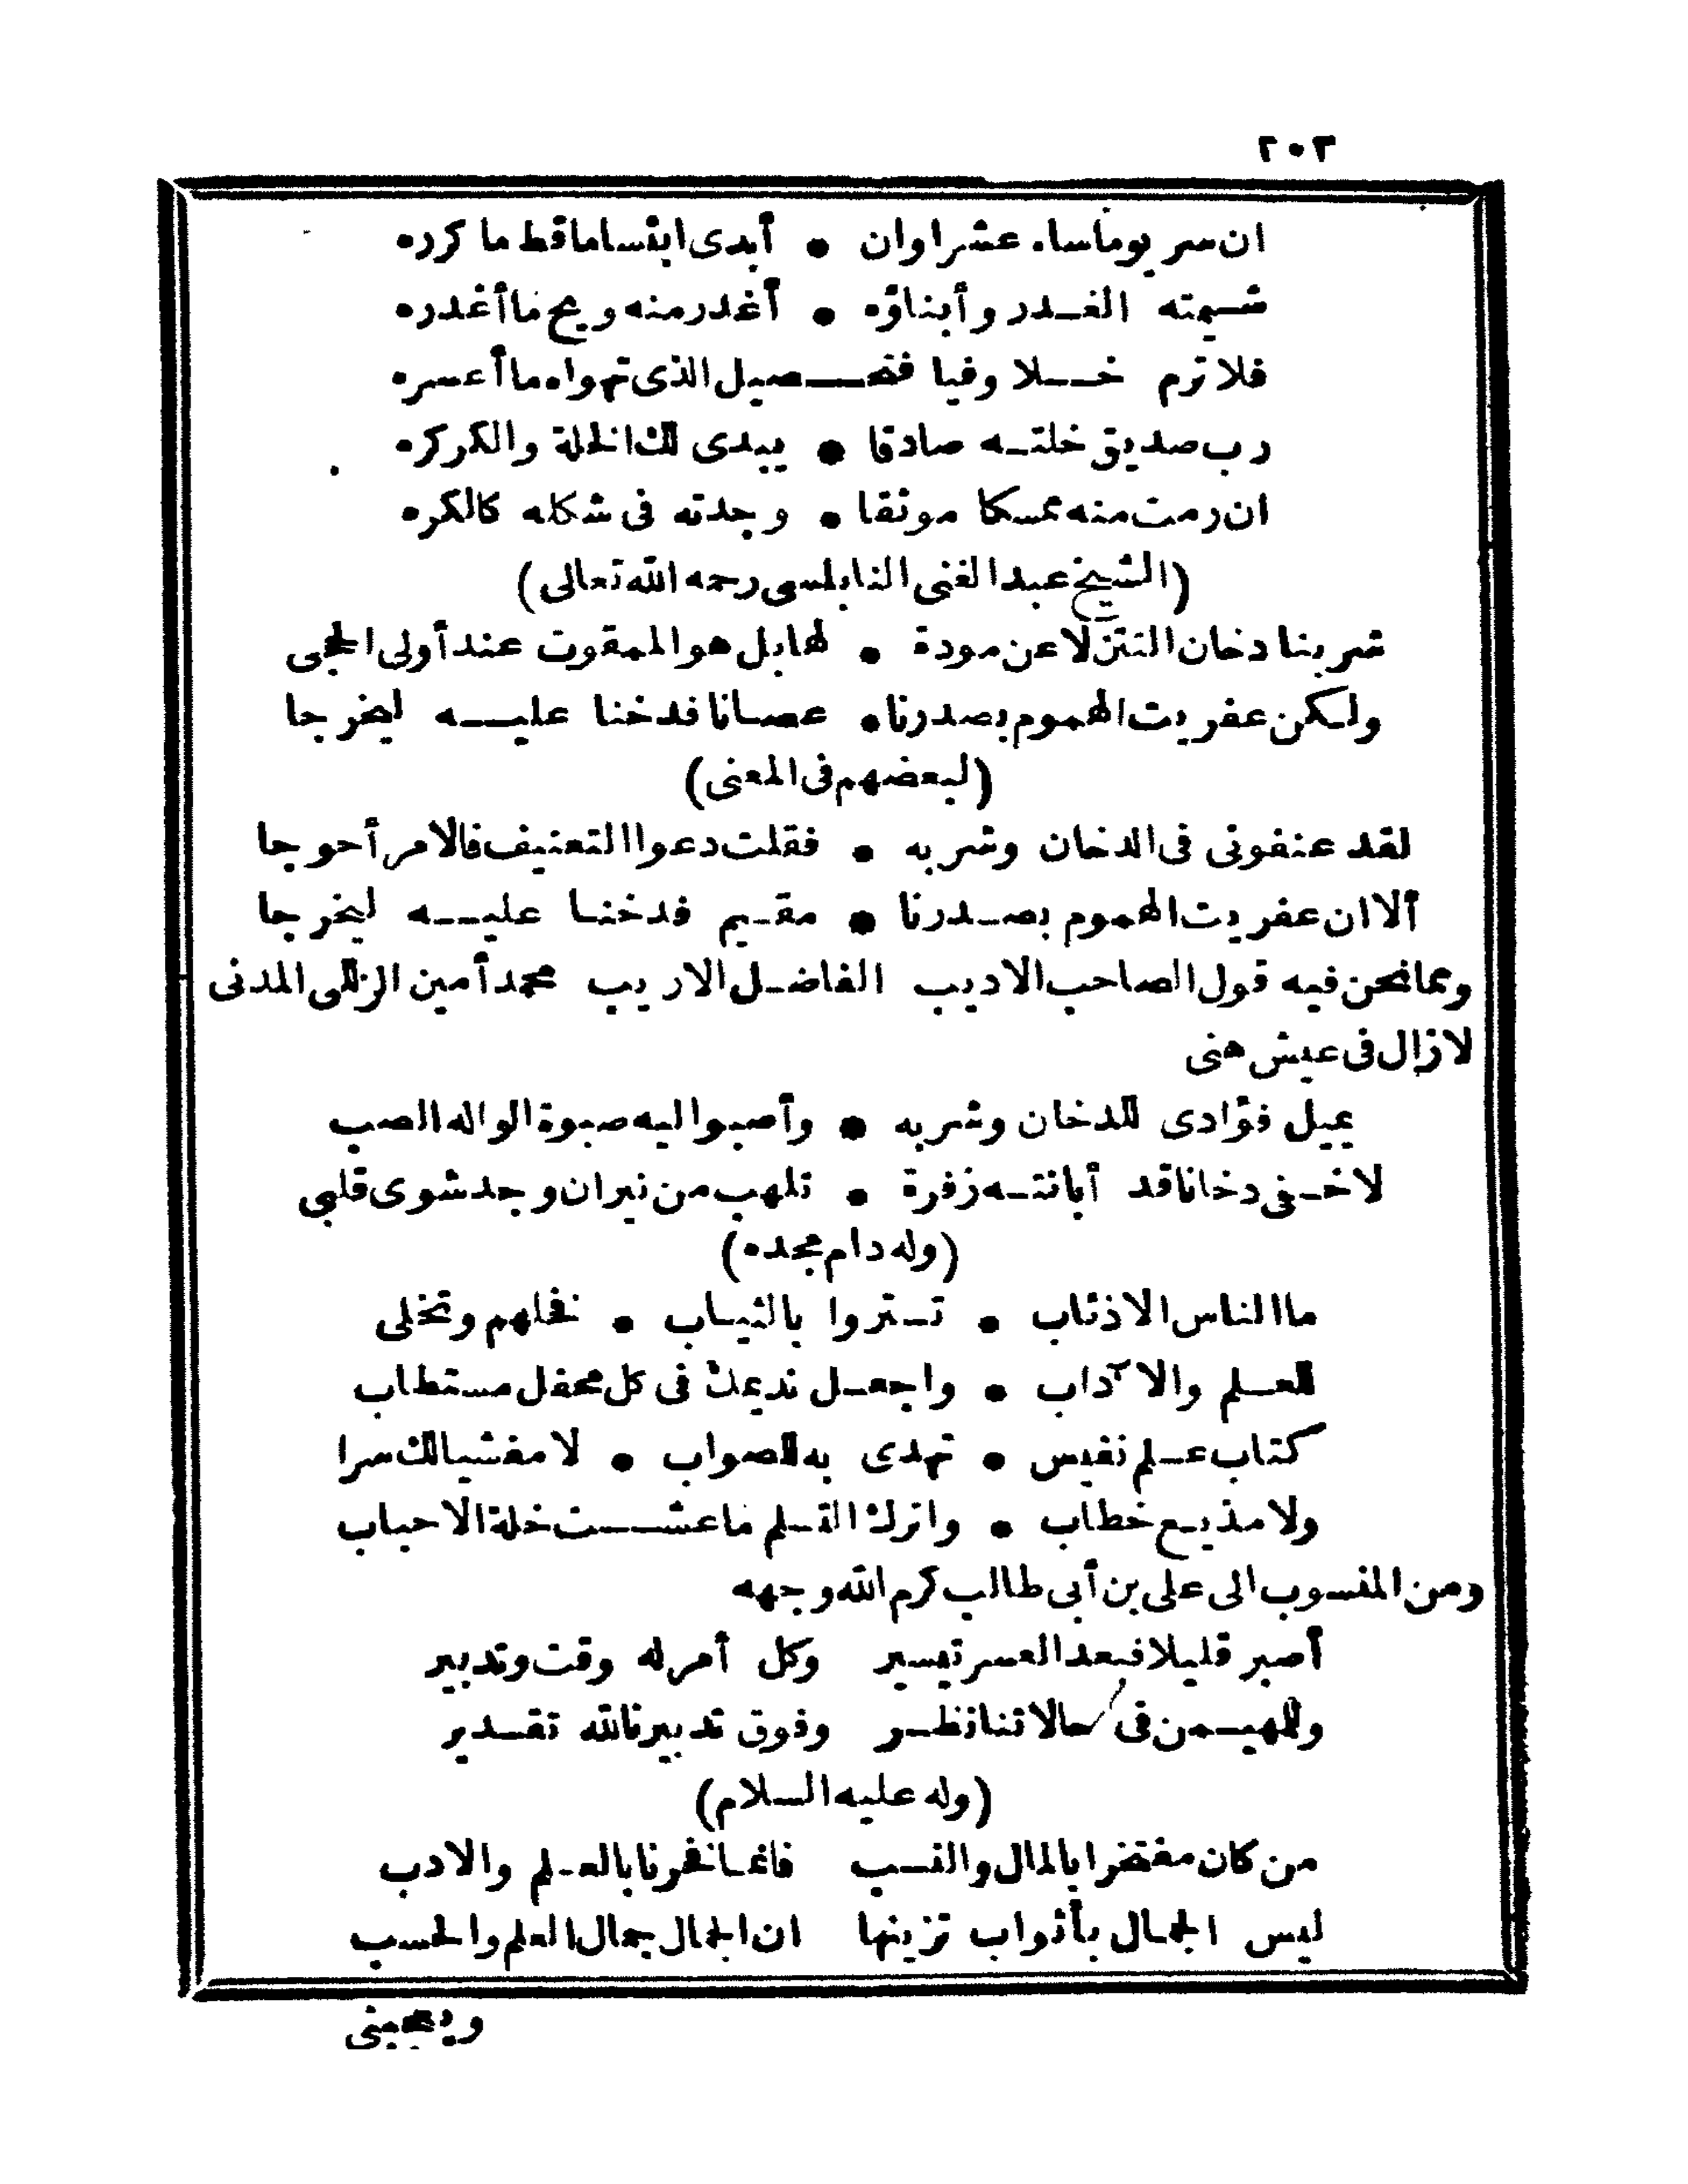 ٢٠٣
ان سر يوما ساء عشرا وان • أبدى ابتساما قط ما كرره
شيمته الغدر وأبناؤه • أغدر منه ويح ما أغدره
فلا ترم خلا وفيا فتحصيل الذى تهواه ما أعسره
رب صديق خلته صادقا • يبدى لك الخلة والكركره
ان رمت منه ممسكا موثقا • وجدته فى شكله كالكره
(الشيخ عبد الغنى النابلسى رحمه الله تعالى)
شربنا دخان التتن لا عن مودة • لها بل هو الممقوت عند أولى الحجى
ولكن عفريت الهموم بصدرنا • عصانا فدخنا عليه ليخرجا
(لبعضهم فى المعنى)
لقد عنفونى فى الدخان وشربه • فقلت دعوا التعنيف فالامر أحوجا
ألا ان عفريت الهموم بصدرنا • مقيم فدخنا عليه ليخرجا
ومما نحن فيه قول الصاحب الاديب الفاضل الاريب محمد أمين الزللى المدنى
لا زال فى عيش هنى
يميل فؤادى للدخان وشربه • وأصبوا اليه صبوة الواله الصب
لاخفى دخانا قد أبانته زفرة • تلهب من نيران وجد شوى قلبى
(وله دام مجده)
ما الناس الا ذئاب • تستروا بالثياب • فخلهم وتخلى
للعلم والآداب • واجعل نديمك فى كل محفل مستطاب
كتاب علم نفيس • تهدى به للصواب • لا مفشيا لك سرا
ولا مذيع خطاب • واترك القلم ما عشت خلة الاحباب
ومن المنسوب الى على بن أبى طالب كرم الله وجهه
أصبر قليلا فبعد العسر تيسير وكل أمر له وقت وتدبير
وللمهيمن فى حالاتنا نظر وفوق تدبيرنا لله تقدير
(وله عليه السلام)
من كان مفتخرا بالمال والنسب فانما فخرنا بالعلم والادب
ليس الجمال بأثواب تزينها ان الجمال جمال العلم والحسب
ويعجبنى